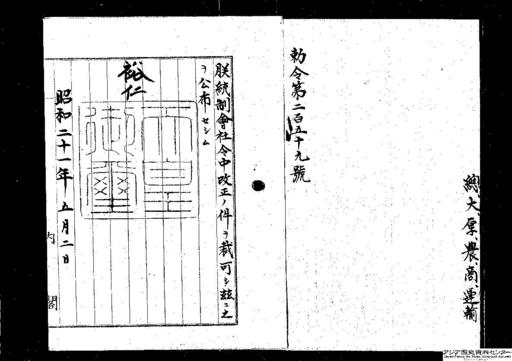 總、大、厚、農、商、運輸
勅令第二百五十九號
朕統制會社令中改正ノ件ヲ裁可シ茲ニ之
ヲ公布セシム
裕仁
天皇御璽
昭和二十一年五月二日
内閣
アジア歴史資料センター